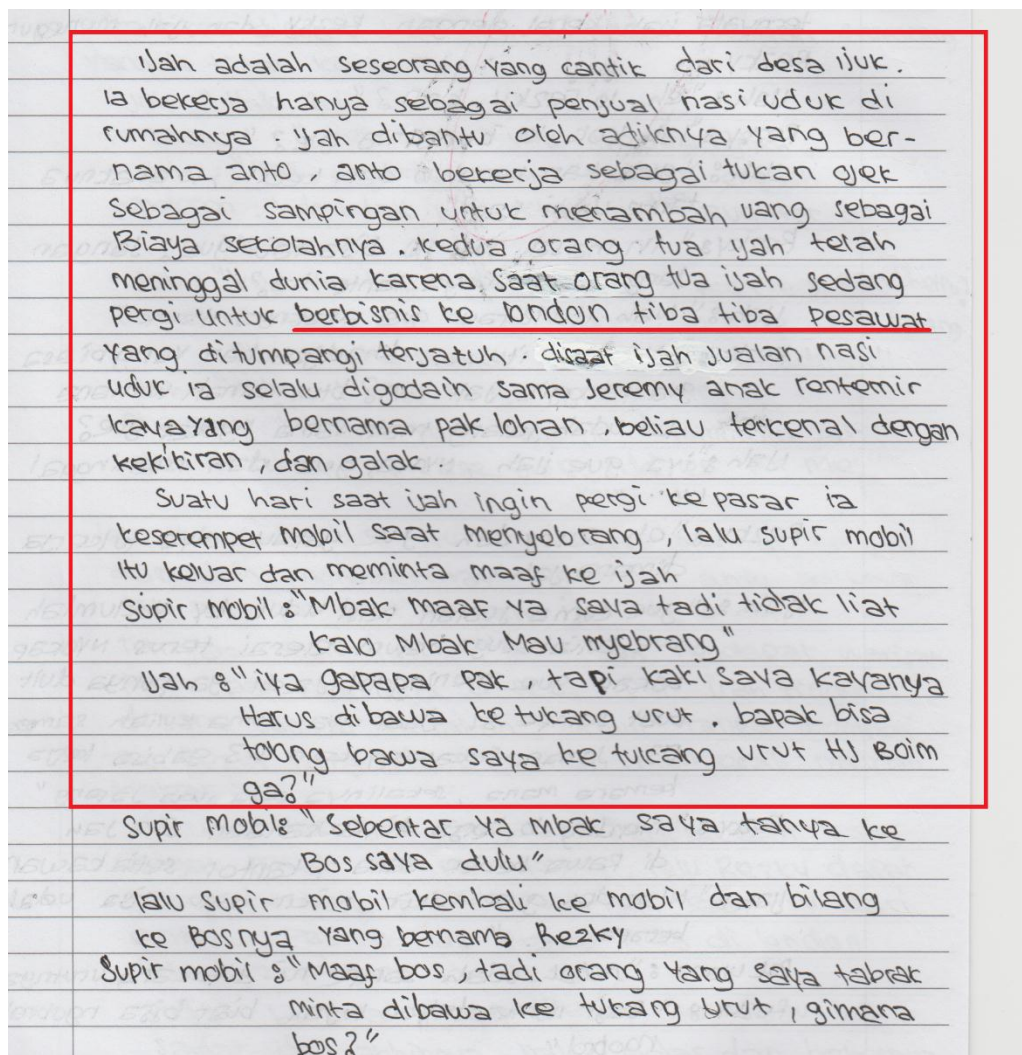 Ijah adalah seseorang yang cantik dari desa ijuk.
Ia bekerja hanya sebagai penjual nasi uduk di
rumahnya. ijah dibantu oleh adiknya yang ber-
nama anto, anto bekerja sebagai tukan ojek
sebagai sampingan untuk menambah uang sebagai
Biaya sekolahnya. kedua orang tua ijah telah
meninggal dunia karena saat orang tua ijah sedang
pergi untuk berbisnis ke london tiba tiba pesawat
yang ditumpangi terjatuh. disaat ijah jualan nasi
uduk ia selalu digodain sama Jeremy anak rentemir
kaya yang bernama pak lohan, beliau terkenal dengan
kekikiran, dan galak.
Suatu hari saat ijah ingin pergi ke pasar ia
keserempet mobil saat menyebrang, lalu supir mobil
itu keluar dan meminta maaf ke ijah
Supir Mobil: "Mbak maaf ya saya tadi tidak liat
kalo Mbak Mau nyebrang"
Ijah: "iya gapapa pak, tapi kaki saya kayanya
Harus dibawa ke tukang urut. bapak bisa
tolong bawa saya ke tukang urut HJ Boim
ga?"
Supir Mobil: "Sebentar ya mbak saya tanya ke
Bos saya dulu"
lalu supir mobil kembali ke mobil dan bilang
ke Bosnya yang bernama Rezky
Supir mobil: "Maaf bos, tadi orang yang saya tabrak
minta dibawa ke tukang urut, gimana
bos?"